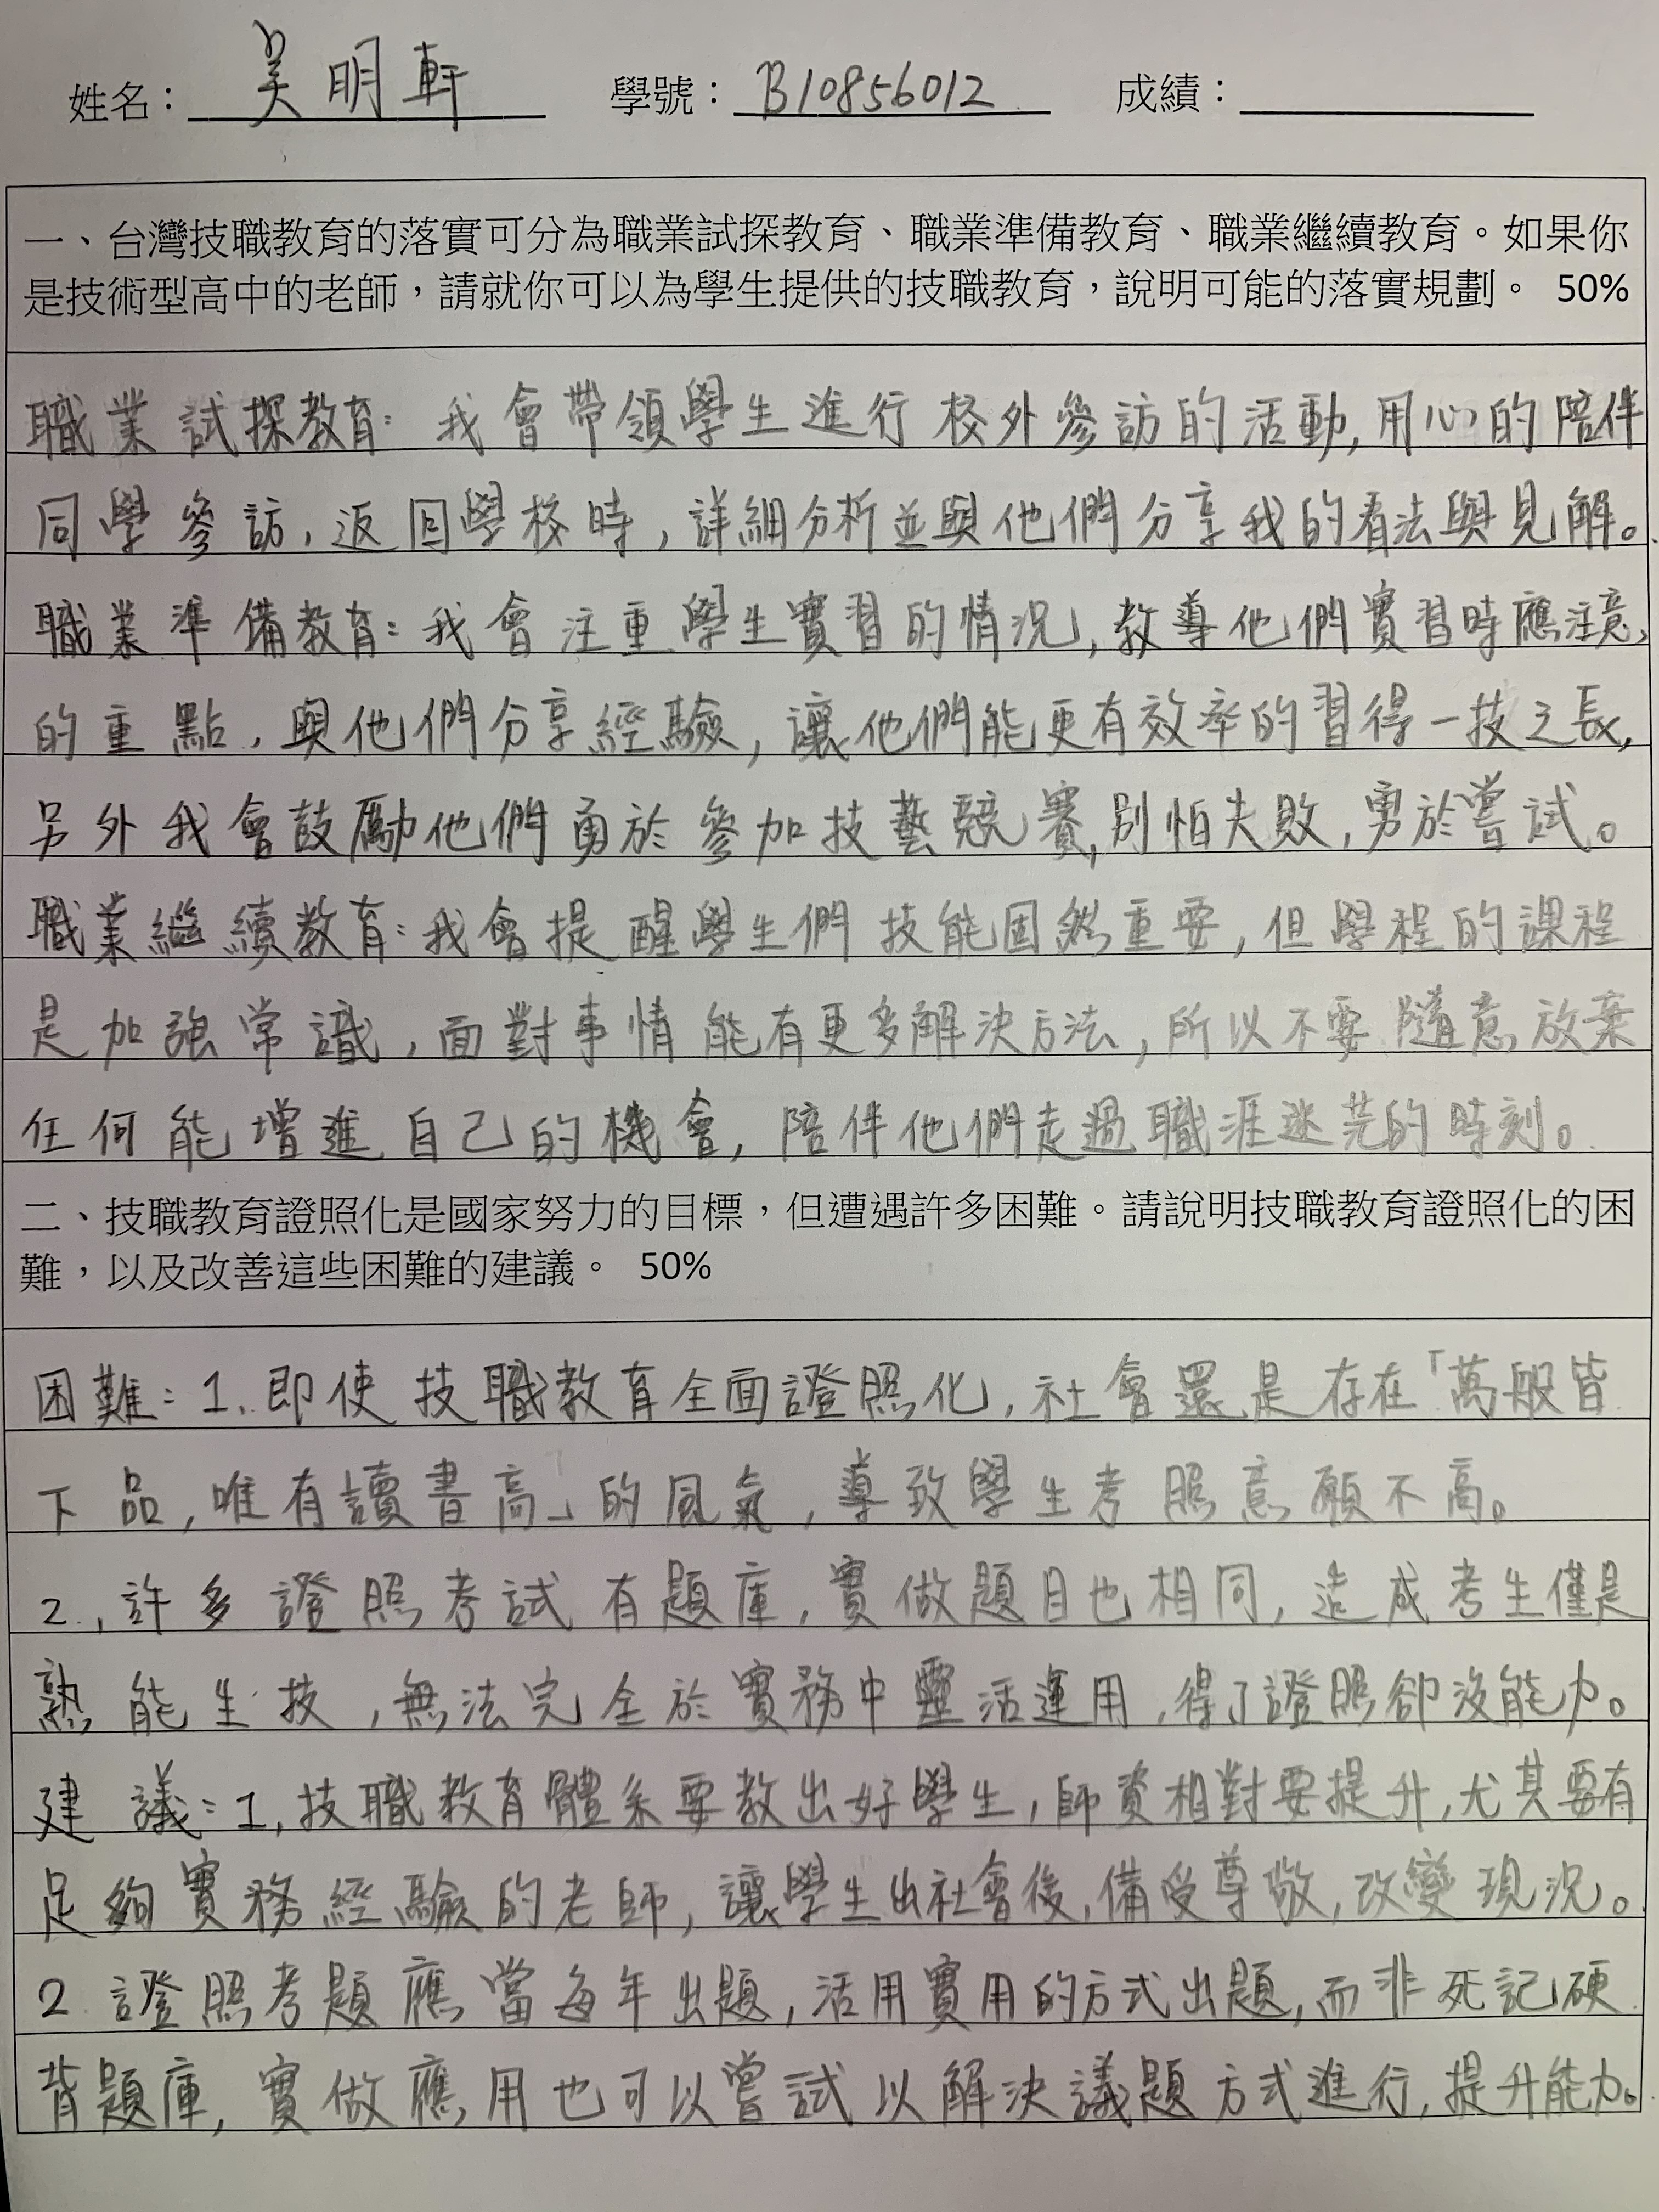 姓名：吳明軒 學號：B10856012 成績：
一、台灣技職教育的落實可分為職業試探教育、職業準備教育、職業繼續教育。如果你
是技術型高中的老師，請就你可以為學生提供的技職教育，說明可能的落實規劃。 50%
職業試探教育：我會帶領學生進行校外參訪的活動，用心的陪伴
同學參訪，返回學校時，詳細分析並與他們分享我的看法與見解。
職業準備教育：我會注重學生實習的情況，教導他們實習時應注意
的重點，與他們分享經驗，讓他們能更有效率的習得一技之長，
另外我會鼓勵他們勇於參加技藝競賽，別怕失敗，勇於嘗試。
職業繼續教育：我會提醒學生們技能固然重要，但學程的課程
是加強常識，面對事情能有更多解決方法，所以不要隨意放棄
任何能增進自己的機會，陪伴他們走過職涯迷茫的時刻。
二、技職教育證照化是國家努力的目標，但遭遇許多困難。請說明技職教育證照化的困
難，以及改善這些困難的建議。 50%
困難：1.即使技職教育全面證照化，社會還是存在「萬般皆
下品，唯有讀書高」的風氣，導致學生考照意願不高。
2.，許多證照考試有題庫，實做題目也相同，造成考生僅是
熟能生技，無法完全於實務中靈活運用，得了證照卻沒能力。
建議：1，技職教育體系要教出好學生，師資相對要提升，尤其要有
足夠實務經驗的老師，讓學生出社會後，備受尊敬，改變現況。
2.證照考題應當每年出題，活用實用的方式出題，而非死記硬
背題庫，實做應用也可以嘗試以解決議題方式進行，提升能力。